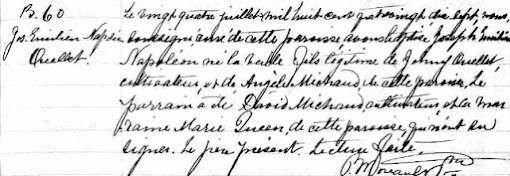 B. 60
Jos. Emilien Napoléon
Ouellet.
Le vingt quatre juillet mil huit cent quatre vingt dix sept, nous,
soussigné curé de cette paroisse avons baptisé Joseph Emilien
Napoléon né la veille fils légitime de Johny Ouellet,
cultivateur, et de Angèle Michaud, de cette paroisse. Le
parrain a été David Michaud, cultivateur, et la mar
raine Marie Queen de cette paroisse, qui n'ont su
signer. Le père présent. Lecture faite.
Ptre